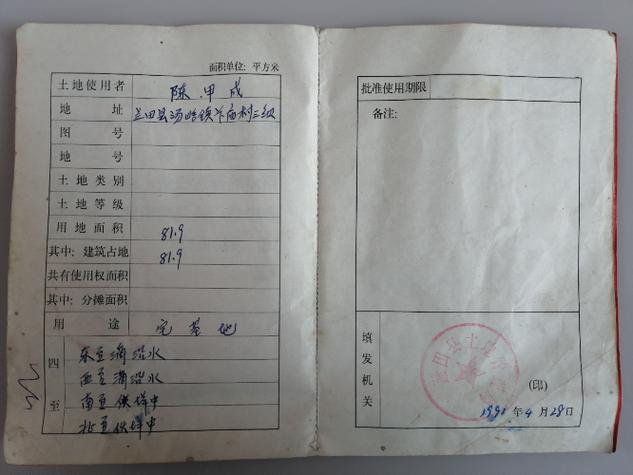 面积单位：平方米
土地使用者 陈甲成
地址 兰田县汤峪镇 庙村三级
图号
地号
土地类别
土地等级
用地面积 81.9
其中：建筑占地 81.9
共有使用权面积
其中：分摊面积
用途 宅基地
四至
东至滴涩水
西至滴涩水
南至伙墙中
北至伙墙中
批准使用期限
备注：
填发机关
蓝田县土地
(印)
1991年4月28日